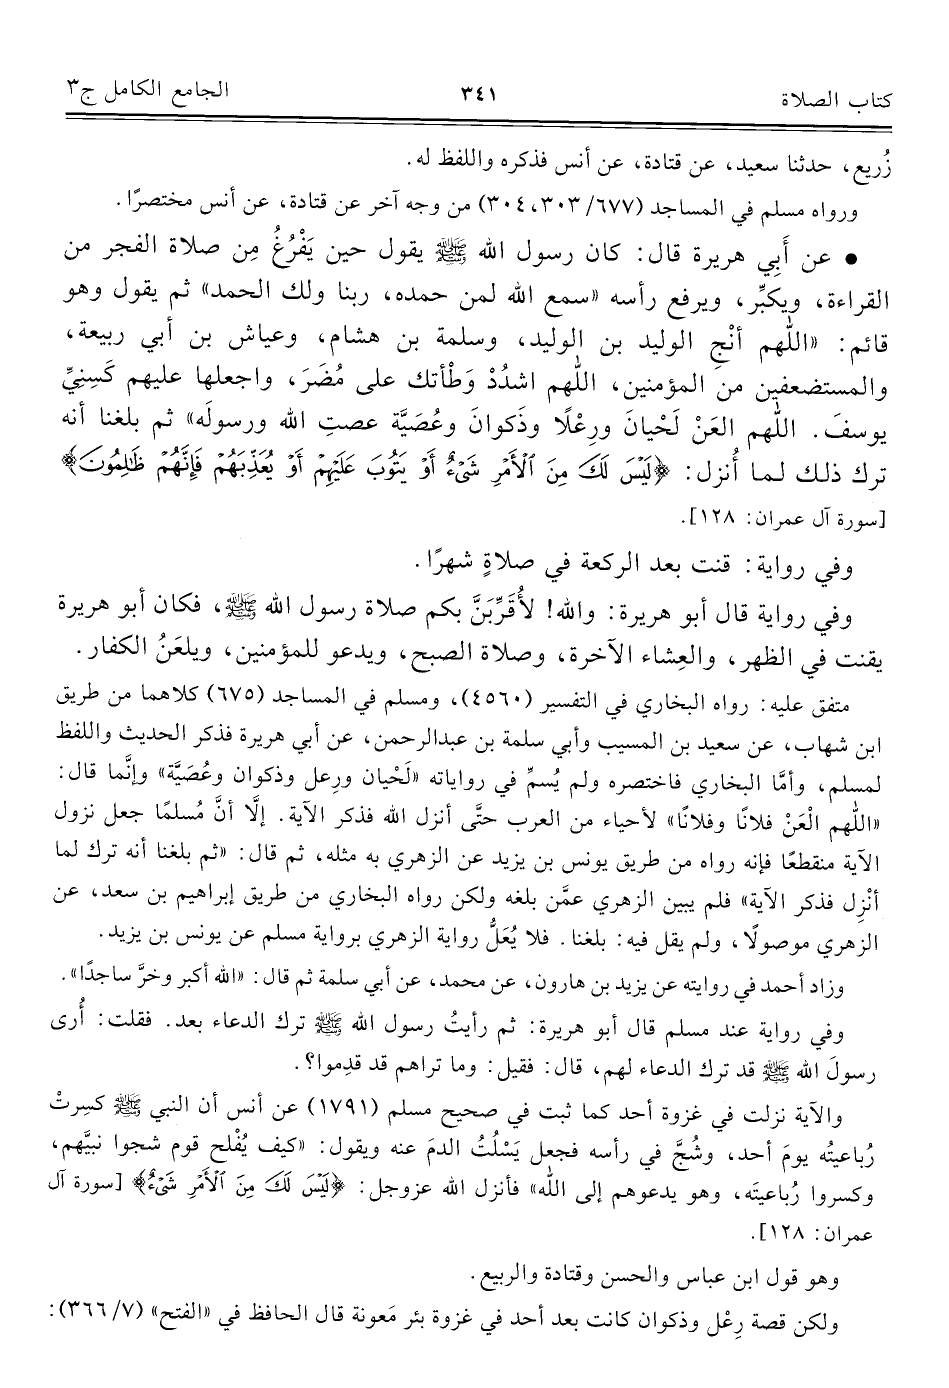 كتاب الصلاة ٣٤١ الجامع الكامل ج٣
زُريع، حدثنا سعيد، عن قتادة، عن أنس فذكره واللفظ له.
ورواه مسلم في المساجد (٦٧٧/ ٣٠٣، ٣٠٤) من وجه آخر عن قتادة، عن أنس مختصرًا.
• عن أَبِي هريرة قال: كان رسول الله ﷺ يقول حين يَفْرُغُ مِن صلاة الفجر من
القراءة، ويكبِّر، ويرفع رأسه «سمع الله لمن حمده، ربنا ولك الحمد» ثم يقول وهو
قائم: «اللّهم أنْجِ الوليد بن الوليد، وسلمة بن هشام، وعياش بن أبي ربيعة،
والمستضعفين من المؤمنين، اللّهم اشدُدْ وَطْأتك على مُضَرَ، واجعلها عليهم كَسِنِيِّ
يوسفَ. اللّهم العَنْ لَحْيانَ ورِعْلًا وذَكوانَ وعُصَيَّة عصتِ الله ورسولَه» ثم بلغنا أنه
ترك ذلك لما أُنزل: ﴿لَيْسَ لَكَ مِنَ ٱلْأَمْرِ شَىْءٌ أَوْ يَتُوبَ عَلَيْهِمْ أَوْ يُعَذِّبَهُمْ فَإِنَّهُمْ ظَٰلِمُونَ﴾
[سورة آل عمران: ١٢٨].
وفي رواية: قنت بعد الركعة في صلاةٍ شهرًا.
وفي رواية قال أبو هريرة: والله! لأُقَرِّبَنَّ بكم صلاة رسول الله ﷺ، فكان أبو هريرة
يقنت في الظهر، والعِشاء الآخرة، وصلاة الصبح، ويدعو للمؤمنين، ويلعَنُ الكفار.
متفق عليه: رواه البخاري في التفسير (٤٥٦٠)، ومسلم في المساجد (٦٧٥) كلاهما من طريق
ابن شهاب، عن سعيد بن المسيب وأبي سلمة بن عبدالرحمن، عن أبي هريرة فذكر الحديث واللفظ
لمسلم، وأمَّا البخاري فاختصره ولم يُسمِّ في رواياته «لَحْيان ورِعل وذكوان وعُصَيَّة» وإنَّما قال:
«اللّهم الْعَنْ فلانًا وفلانًا» لأحياء من العرب حتَّى أنزل الله فذكر الآية. إلَّا أنَّ مُسلمًا جعل نزول
الآية منقطعًا فإنه رواه من طريق يونس بن يزيد عن الزهري به مثله، ثم قال: «ثم بلغنا أنه ترك لما
أنْزِل فذكر الآية» فلم يبين الزهري عمَّن بلغه ولكن رواه البخاري من طريق إبراهيم بن سعد، عن
الزهري موصولًا، ولم يقل فيه: بلغنا. فلا يُعَلُّ رواية الزهري برواية مسلم عن يونس بن يزيد.
وزاد أحمد في روايته عن يزيد بن هارون، عن محمد، عن أبي سلمة ثم قال: «الله أكبر وخرَّ ساجدًا».
وفي رواية عند مسلم قال أبو هريرة: ثم رأيتُ رسول الله ﷺ ترك الدعاء بعد. فقلت: أُرى
رسولَ الله ﷺ قد ترك الدعاء لهم، قال: فقيل: وما تراهم قد قدِموا؟.
والآية نزلت في غزوة أحد كما ثبت في صحيح مسلم (١٧٩١) عن أنس أن النبي ﷺ كسِرتْ
رُباعيتُه يومَ أحد، وشُجَّ في رأسه فجعل يَسْلُتُ الدمَ عنه ويقول: «كيف يُفْلح قوم شجوا نبيَّهم،
وكسروا رُباعيتَه، وهو يدعوهم إلى الله» فأنزل الله عزوجل: ﴿لَيْسَ لَكَ مِنَ ٱلْأَمْرِ شَىْءٌ﴾ [سورة آل
عمران: ١٢٨].
وهو قول ابن عباس والحسن وقتادة والربيع.
ولكن قصة رِعْل وذكوان كانت بعد أحد في غزوة بئر مَعونة قال الحافظ في «الفتح» (٧/ ٣٦٦):